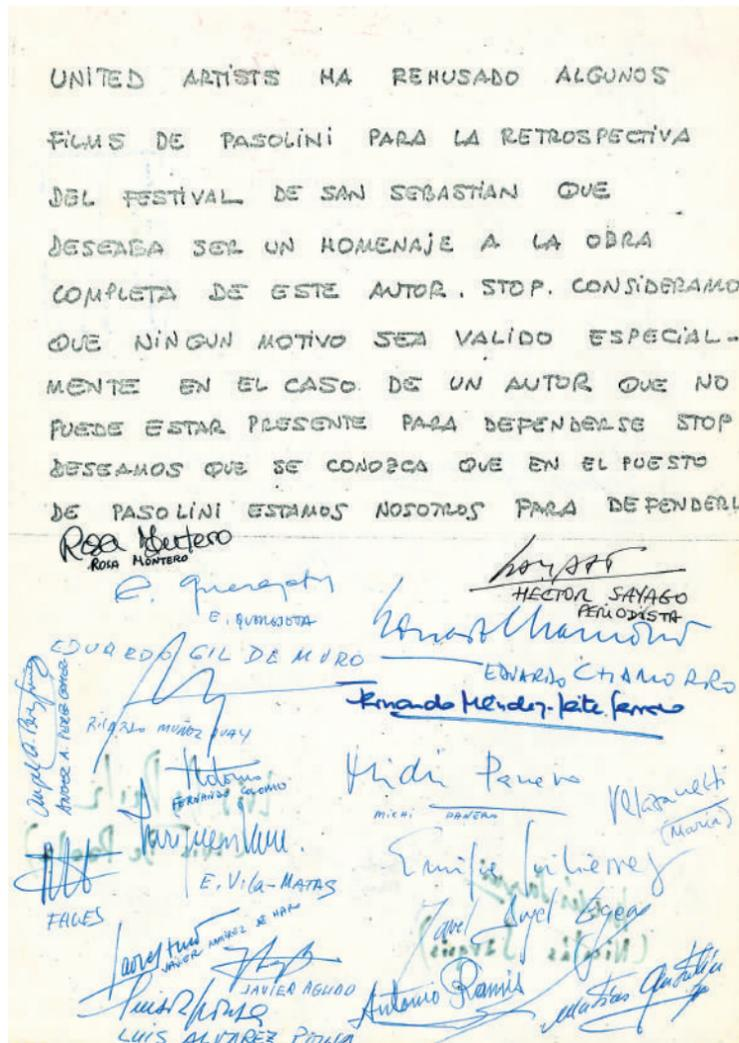 UNITED ARTISTS HA REHUSADO ALGUNOS
FILMS DE PASOLINI PARA LA RETROSPECTIVA
DEL FESTIVAL DE SAN SEBASTIAN QUE
DESEABA SER UN HOMENAJE A LA OBRA
COMPLETA DE ESTE AUTOR. STOP. CONSIDERAMO
QUE NINGUN MOTIVO SEA VALIDO ESPECIAL-
MENTE EN EL CASO DE UN AUTOR QUE NO
PUEDE ESTAR PRESENTE PARA DEFENDERSE STOP
DESEAMOS QUE SE CONOZCA QUE EN EL PUESTO
DE PASOLINI ESTAMOS NOSOTROS PARA DEFENDERL
Rosa Montero
ROSA MONTERO
HECTOR SAYAGO
PERIODISTA
E. Querejeta
E. QUEREJETA
EDUARDO GIL DE MURO
EDUARDO CHAMORRO
Fernando Méndez-Leite Serrano
RICARDO MUÑOZ SUAY
ANGEL A. PEREZ GOMEZ
FERNANDO COLOMO
Michi Panero
MICHI PANERO
(Maria)
E. VILA-MATAS
Emilio Gutierrez
FAGES
Angel Egea
JAVIER MAQUA
JAVIER AGUDO
Antonio Ramis
Matias Antolin
LUIS ALVAREZ